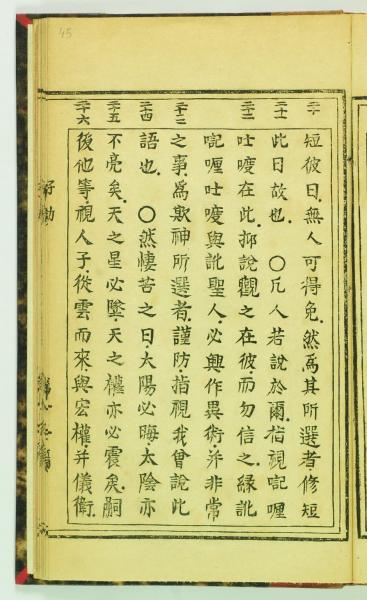 45
二十 短彼日無人可得免然為其所選者修短
二十一 此日故也〇凡人若說於爾指視唭喱
二十二 吐㗻在此抑說觀之在彼而勿信之緣訛
唭喱吐㗻與訛聖人必興作異術并非常
二十三 之事為欺神所選者謹防指視我曾說此
二十四 語也〇然悽苦之日太陽必晦太陰亦
二十五 不亮矣天之星必墜天之權亦必震矣嗣
二十六 後他等視人子從雲而來與宏權并儀衛